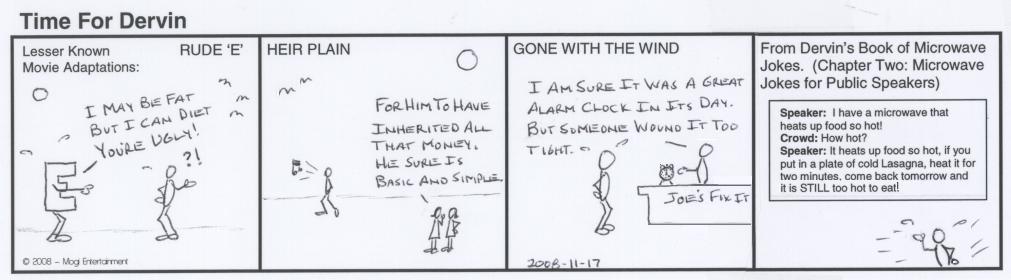 Time For Dervin
Lesser Known
Movie Adaptations:
RUDE 'E'
I MAY BE FAT
BUT I CAN DIET
YOU'RE UGLY!
?!
© 2008 – Mogi Entertainment
HEIR PLAIN
FOR HIM TO HAVE
INHERITED ALL
THAT MONEY,
HE SURE IS
BASIC AND SIMPLE.
GONE WITH THE WIND
I AM SURE IT WAS A GREAT
ALARM CLOCK IN ITS DAY.
BUT SOMEONE WOUND IT TOO
TIGHT.
JOE'S FIX IT
2008-11-17
From Dervin's Book of Microwave
Jokes. (Chapter Two: Microwave
Jokes for Public Speakers)
Speaker: I have a microwave that
heats up food so hot!
Crowd: How hot?
Speaker: It heats up food so hot, if you
put in a plate of cold Lasagna, heat it for
two minutes, come back tomorrow and
it is STILL too hot to eat!